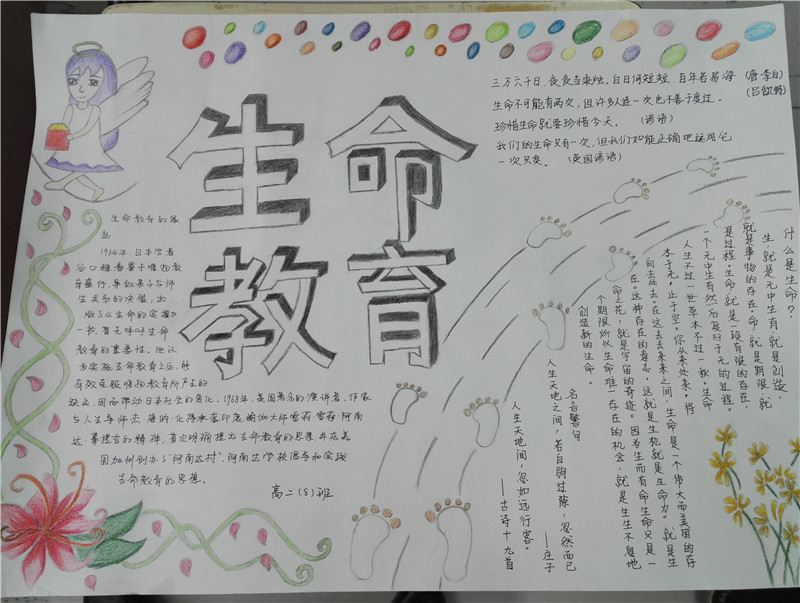 生命
教育
三万六千日，夜夜当秉烛。白日何短短，百年苦易海 (唐·李白)
生命不可能有两次，但许多人连一次也不善于度过。 (吕凯特)
珍惜生命就要珍惜今天。 (谚语)
我们的生命只有一次，但我们如能正确地运用它
一次足矣。 (英国谚语)
生命教育的来
起
1964年，日本学者
谷口雅春
行
生关系的
版了《生命的实相》
一书，着
教育的重要性。他认
为实施生命教育之后，能
有效克服
。1968年，美国著名的演讲者、作家
阿南
达·
的精神，首次明确提出生命教育的思想并在美
国加州创办了"阿南达村"、阿南达学校倡导和实践
生命教育的思想。
高二(8)班
什么是生命？
生，就是无中生有，就是创造，
就是事物的存在。命，就是期限，就
是过程。生命，就是一段有限的存在，
一个无中生有然后复归于无的过程。
人生不过一世，草木不过一秋。生命
本于无，止于空。你从来处来，将
向去处去。在这去去来来之间，生命是一个伟大而美丽的存
在。这种存在的意志，这就是生机就是生命力。就是生
命之花，就是宇宙的奇迹。因为生而有命，生命只是一
个期限，所以生命唯一存在的机会，就是生生不息地
创造新的生命。
名言警句
人生天地之间，若白驹过隙，忽然而已
——庄子
人生天地间，忽如远行客。
——古诗十九首